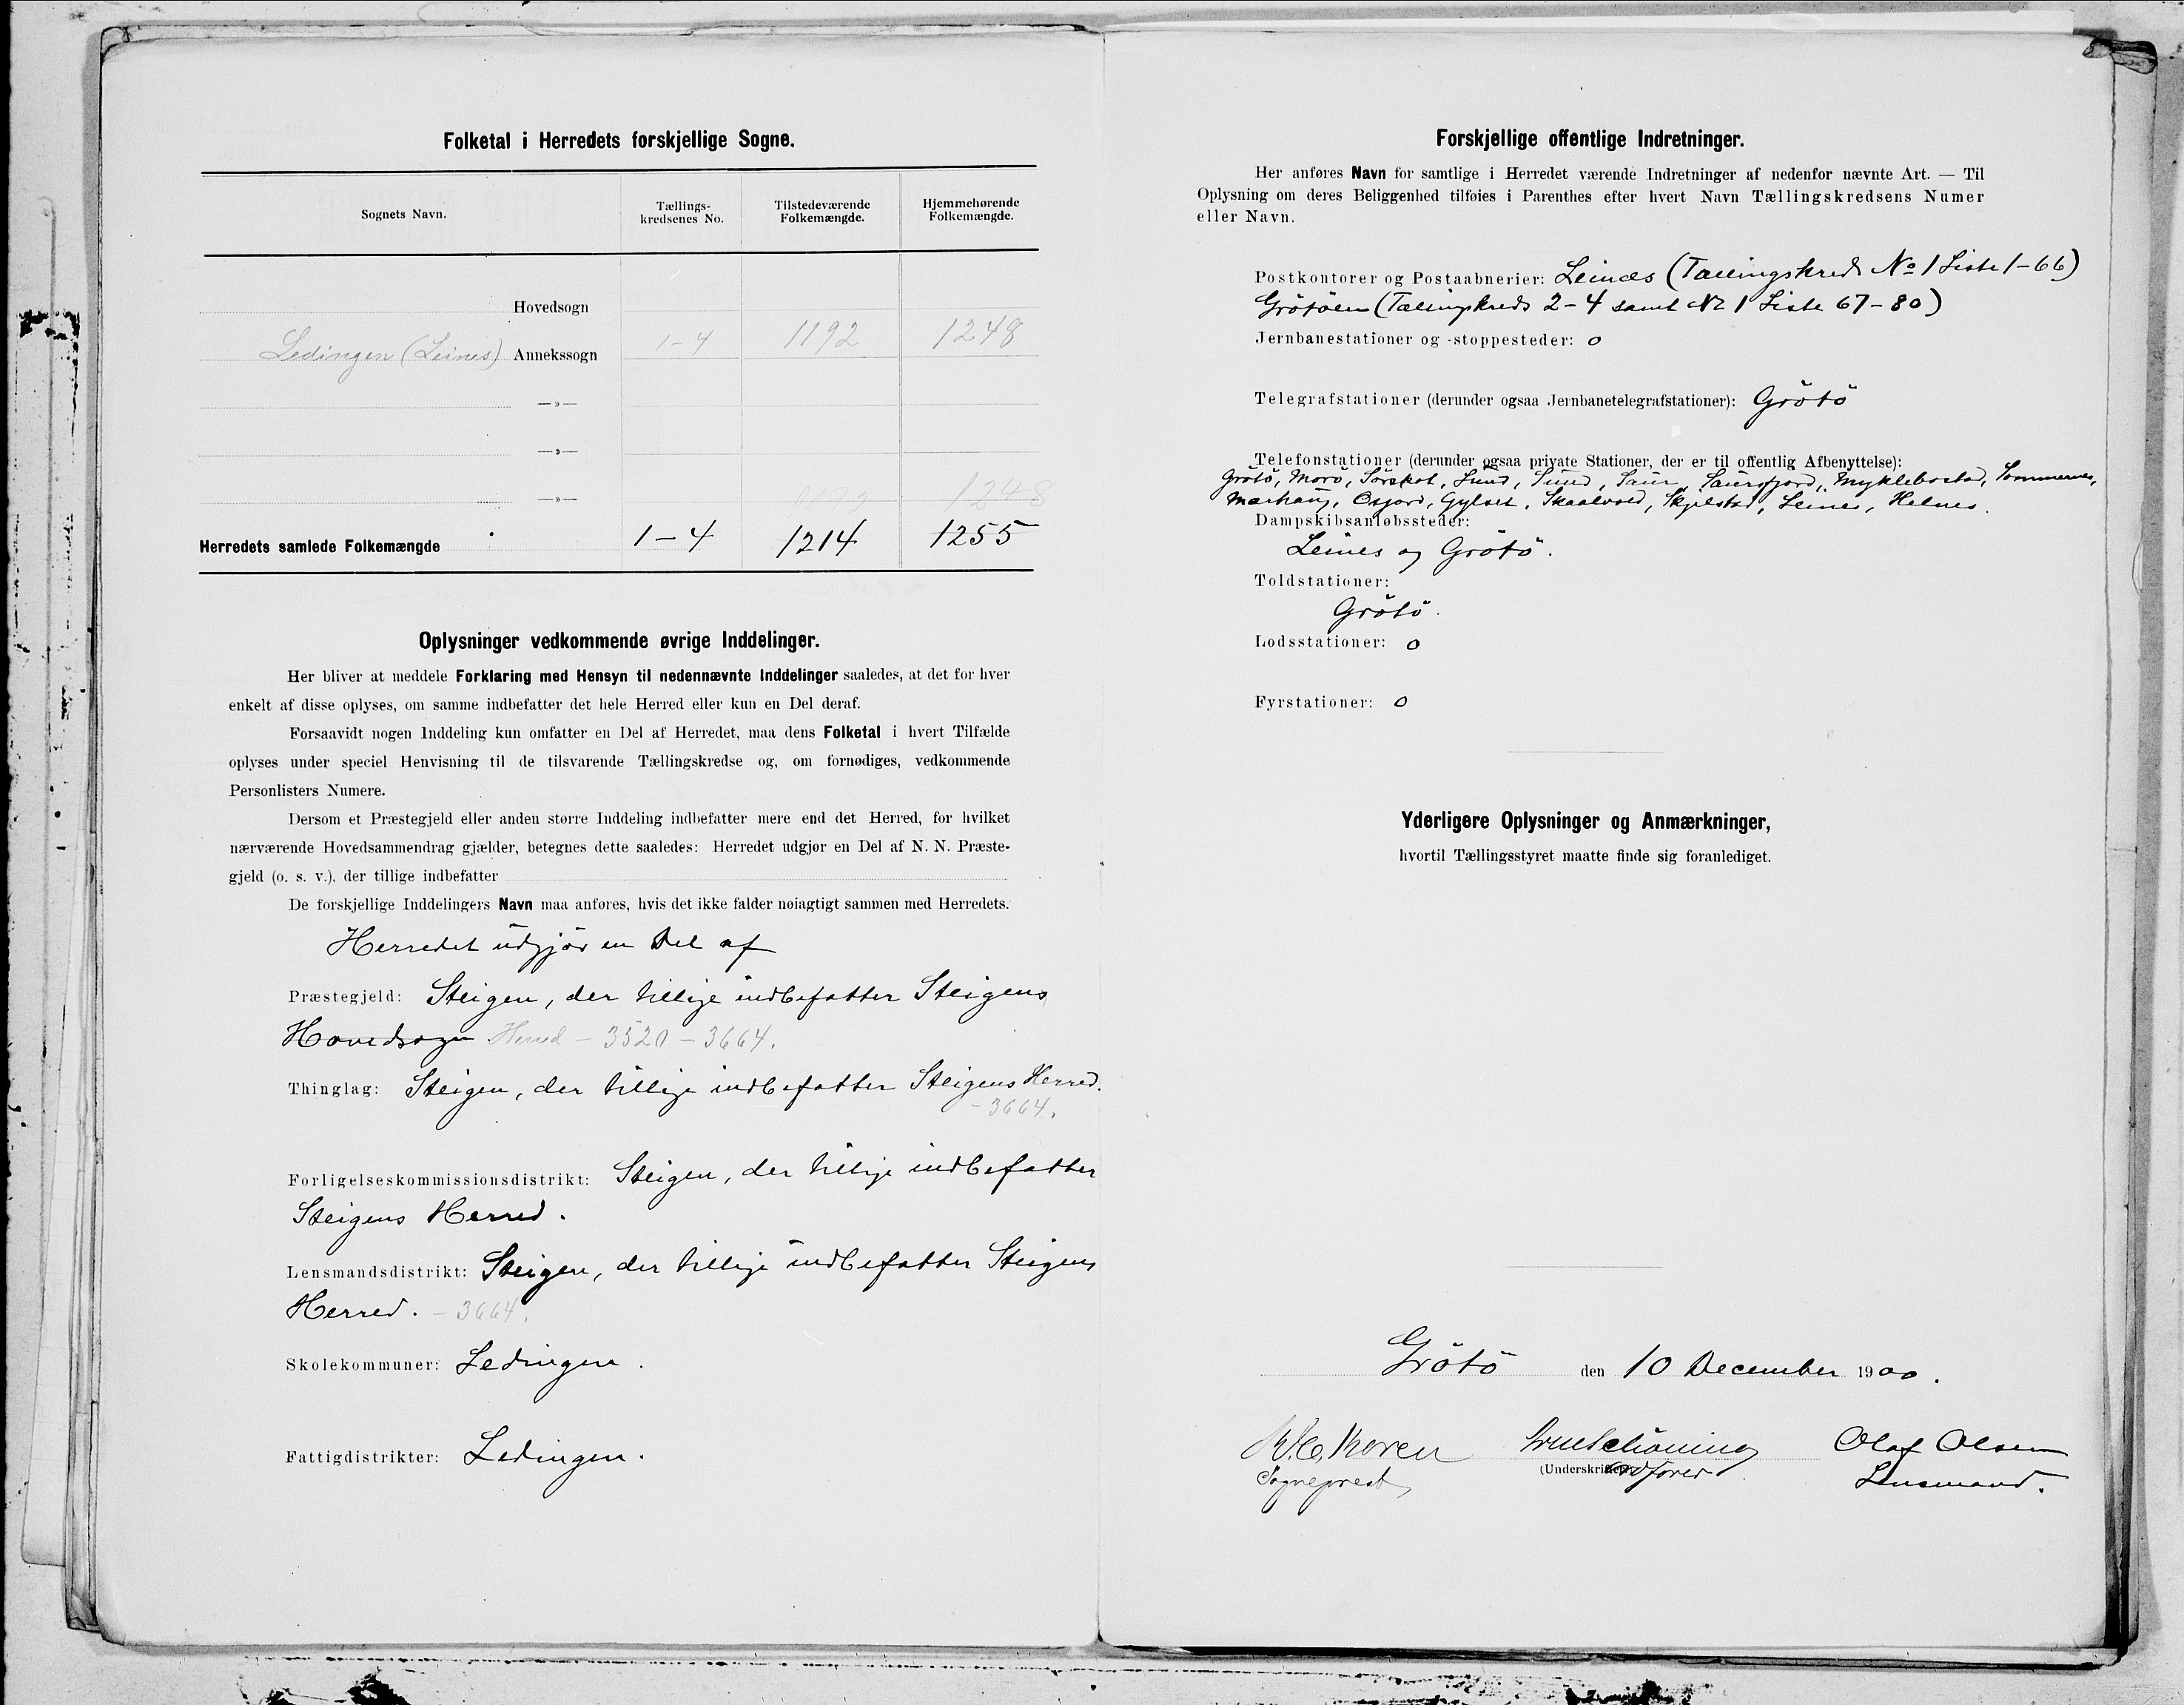 Folketal i Herredets forskjellige Sogne.
Sognets Navn.
Tællings-
kredsenes No.
Tilstedeværende
Folkemængde.
Hjemmehørende
Folkemængde.
Hovedsogn
Ledingen (Leines) Annekssogn 1-4 1192 1248
—»—
—»—
—»— 1192 1248
Herredets samlede Folkemængde 1-4 1214 1255
Oplysninger vedkommende øvrige Inddelinger.
Her bliver at meddele Forklaring med Hensyn til nedennævnte Inddelinger saaledes, at det for hver
enkelt af disse oplyses, om samme indbefatter det hele Herred eller kun en Del deraf.
Forsaavidt nogen Inddeling kun omfatter en Del af Herredet, maa dens Folketal i hvert Tilfælde
oplyses under speciel Henvisning til de tilsvarende Tællingskredse og, om fornødiges, vedkommende
Personlisters Numere.
Dersom et Præstegjeld eller anden større Inddeling indbefatter mere end det Herred, for hvilket
nærværende Hovedsammendrag gjælder, betegnes dette saaledes: Herredet udgjør en Del af N. N. Præste-
gjeld (o. s. v.), der tillige indbefatter
De forskjellige Inddelingers Navn maa anføres, hvis det ikke falder nøiagtigt sammen med Herredets.
Herredet udgjör en Del af
Præstegjeld: Steigen, der tillige indbefatter Steigens
Hovedsogn Herred - 3520 - 3664.
Thinglag: Steigen, der tillige indbefatter Steigens Herred.
- 3664.
Forligelseskommissionsdistrikt: Steigen, der tillige indbefatter
Steigens Herred.
Lensmandsdistrikt: Steigen, der tillige indbefatter Steigens
Herred. - 3664.
Skolekommuner: Ledingen.
Fattigdistrikter: Ledingen.
Forskjellige offentlige Indretninger.
Her anføres Navn for samtlige i Herredet værende Indretninger af nedenfor nævnte Art. — Til
Oplysning om deres Beliggenhed tilføies i Parenthes efter hvert Navn Tællingskredsens Numer
eller Navn.
Postkontorer og Postaabnerier: Leines (Tællingskreds No 1 Liste 1-66)
Grötöen (Tællingskreds 2-4 samt No 1 Liste 67-80)
Jernbanestationer og -stoppesteder: 0
Telegrafstationer (derunder ogsaa Jernbanetelegrafstationer): Grötö
Telefonstationer (derunder ogsaa private Stationer, der er til offentlig Afbenyttelse):
Grötö, Morö, Sörskot, Lund, Sund, Saur, Saursfjord, Myklebostad, Sommernes,
Markaug, Osjord, Gylset, Skaalvold, Skjelstad, Leines, Helnes.
Dampskibsanløbssteder:
Leines og Grötö.
Toldstationer:
Grötö.
Lodsstationer: 0
Fyrstationer: 0
Yderligere Oplysninger og Anmærkninger,
hvortil Tællingsstyret maatte finde sig foranlediget.
Grötö den 10 December 1900.
Schöning Olaf Olsen
Sogneprest (Underskrifter) ordförer Lensmand.